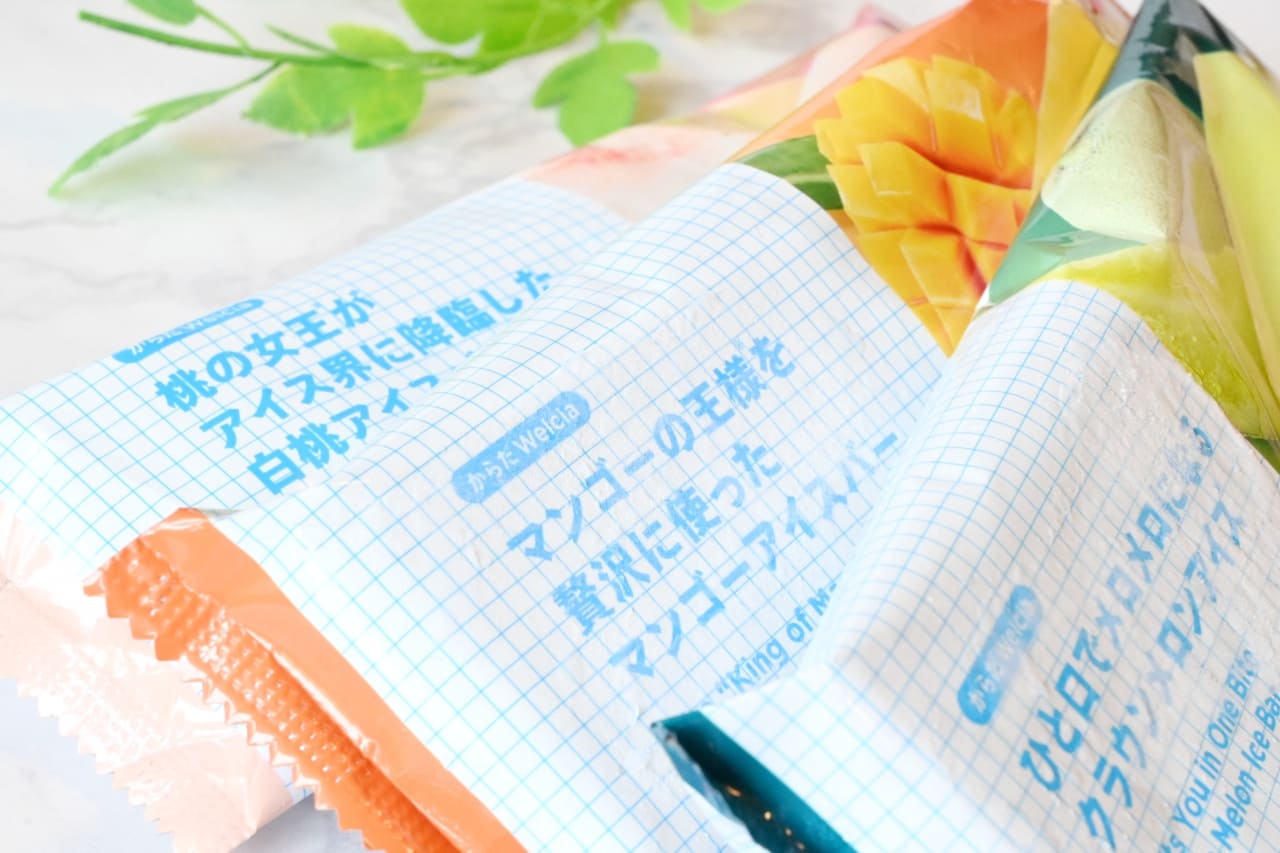 からだWelcia
桃の女王が
アイス界に降臨した
白桃アイ
からだWelcia
マンゴーの王様を
贅沢に使った
マンゴーアイスバー
"King of
からだWelcia
ひと口でメロメロになる
クラウンメロンアイス
You in One Bite
Melon Ice Ba